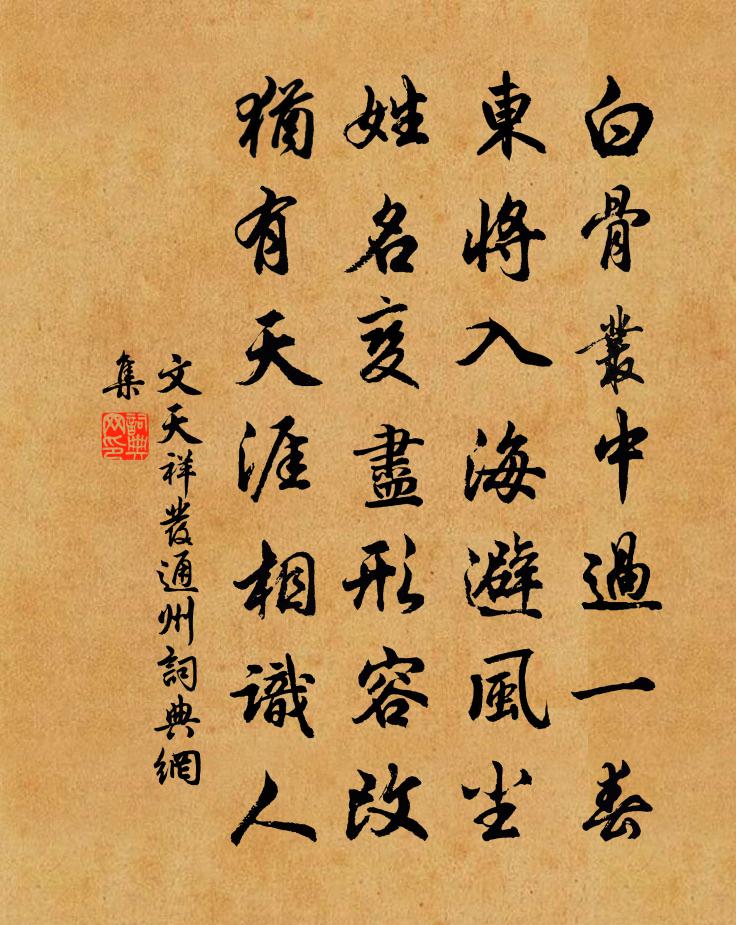 白骨叢中過一春
東將入海避風塵
姓名變盡形容改
猶有天涯相識人
文天祥發通州詞典網
集
詞典網印